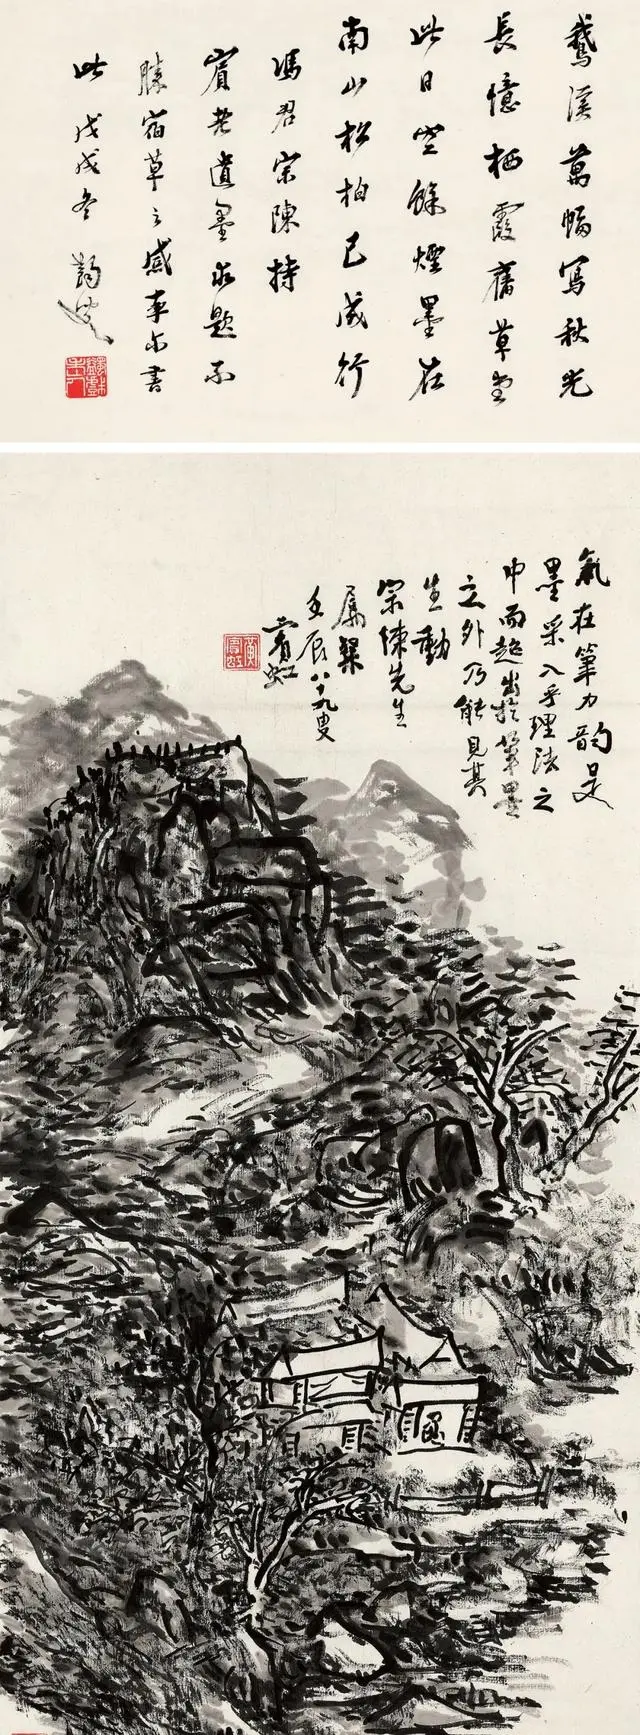 鵝溪萬幅寫秋光
長憶栖霞舊草堂
此日空餘煙墨在
南山松柏已成行
馮君宗陳持
賓老遺墨求題不
勝宿草之感率尔書
此戊戌冬
氣在筆力韵是
墨采入乎理法之
中而超出於筆墨
之外乃能見其
生動
宗陳先生
屬粲
壬辰八十九叟
賓虹
黃賓虹